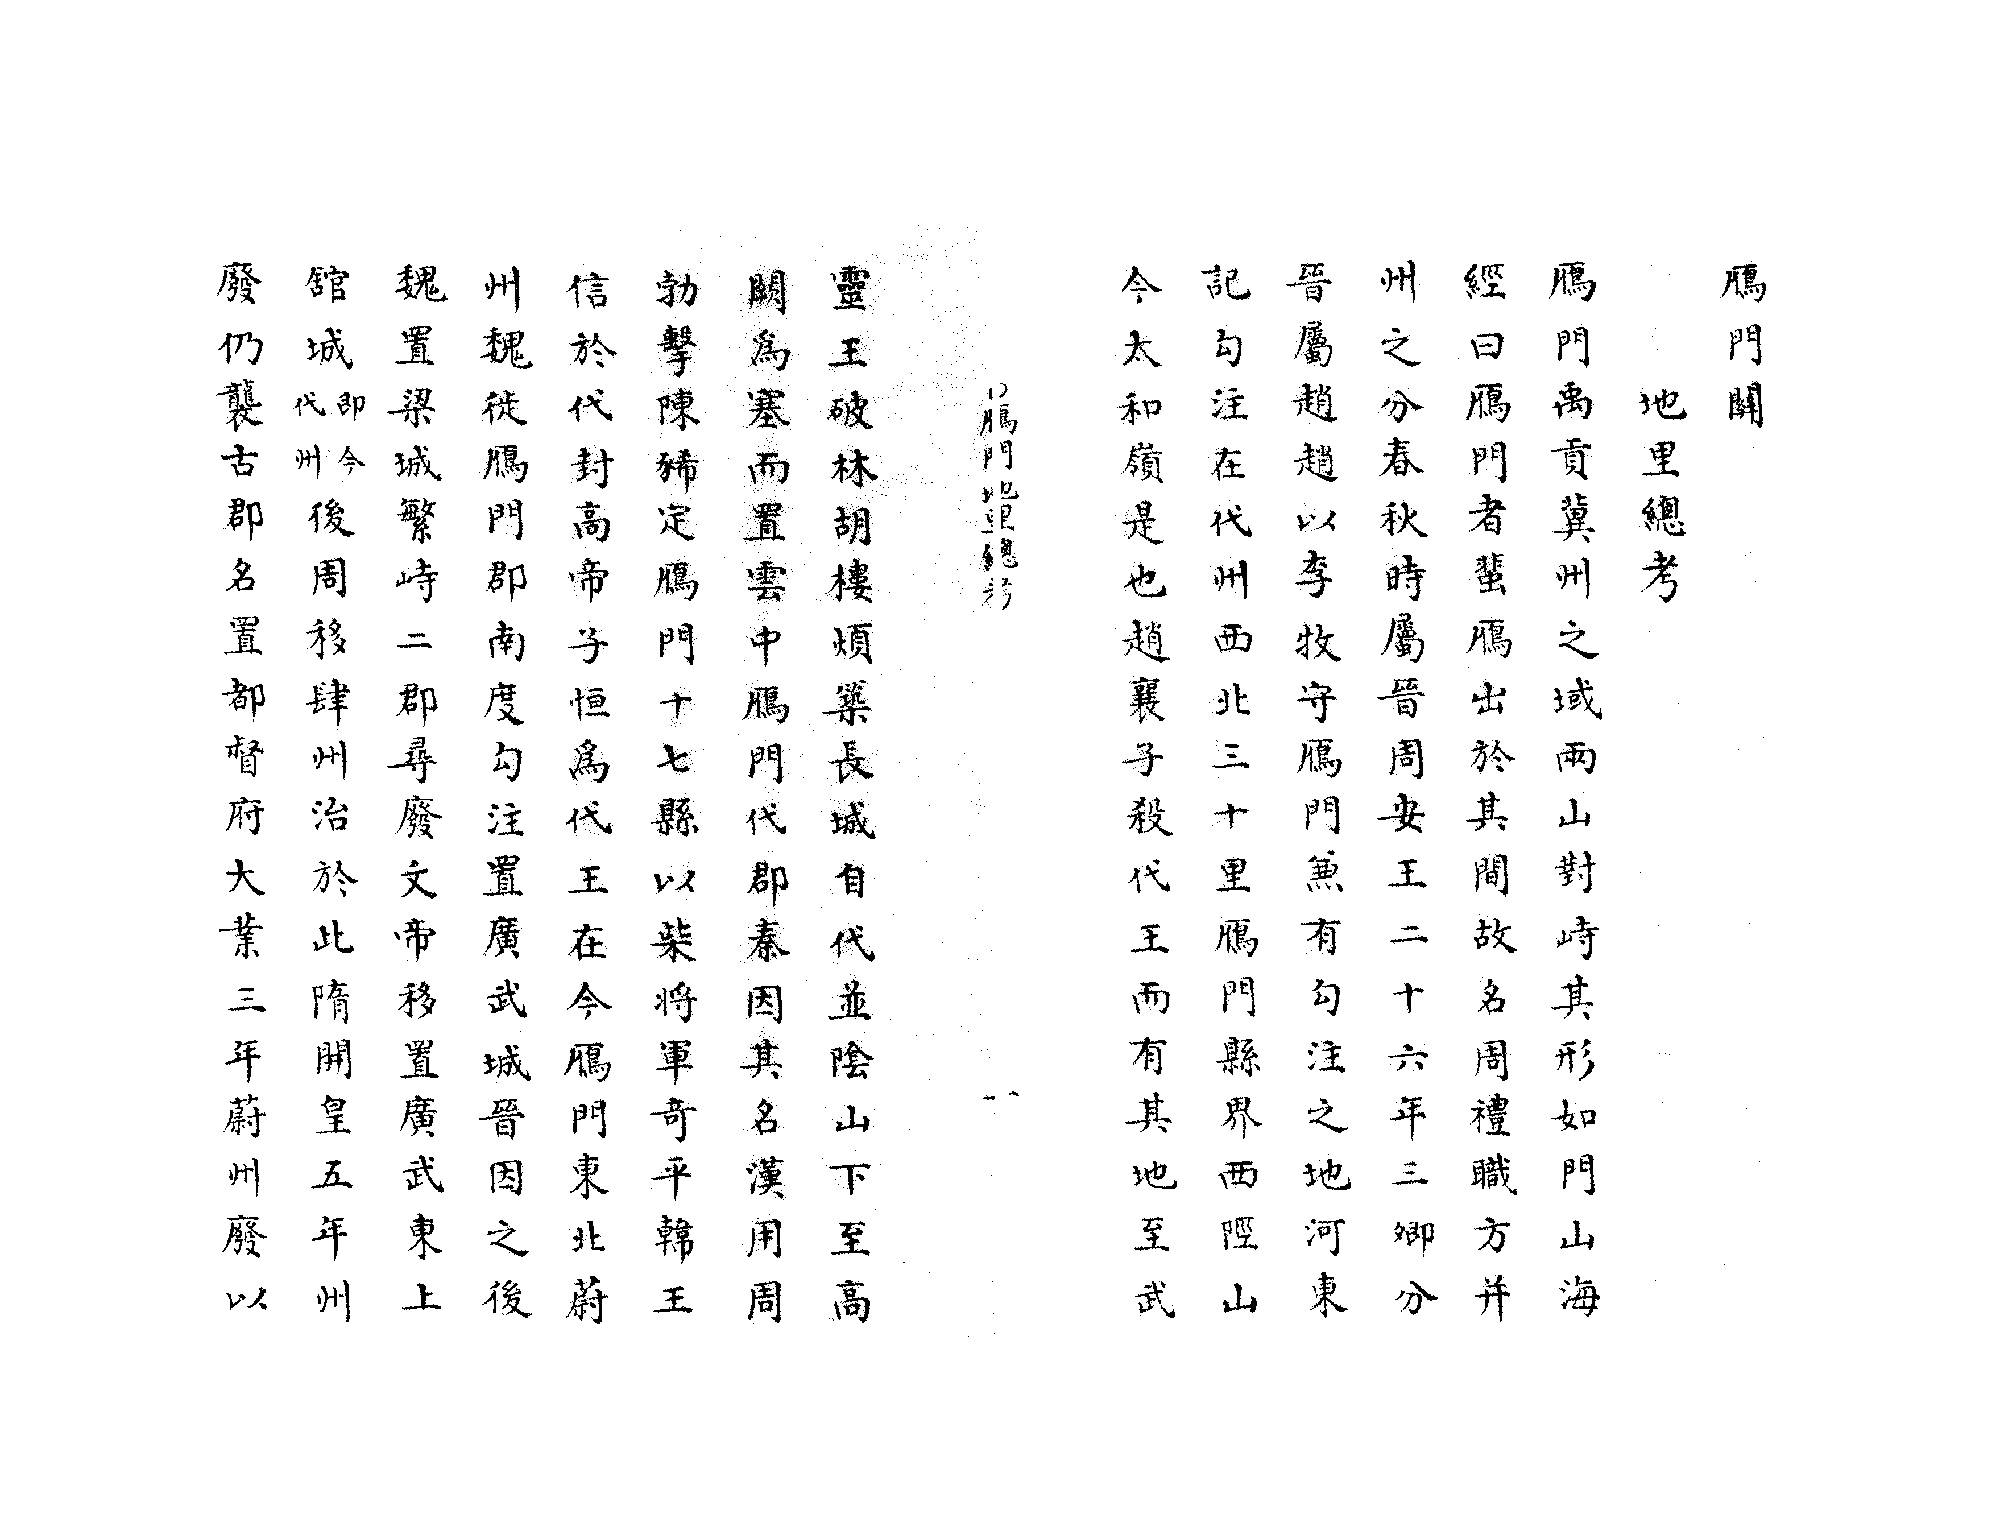 鴈門關
地里總考
鴈門禹貢冀州之域兩山對峙其形如門山海
經曰鴈門者蜚鴈出於其間故名周禮職方并
州之分春秋時屬晉周安王二十六年三卿分
晉屬趙趙以李牧守鴈門兼有勾注之地河東
記勾注在代州西北三十里鴈門縣界西陘山
今太和嶺是也趙襄子殺代王而有其地至武
鴈門地里總考
一
靈王破林胡樓煩築長城自代並陰山下至高
闕爲塞而置雲中鴈門代郡秦因其名漢用周
勃擊陳豨定鴈門十七縣以柴將軍奇平韓王
信於代封高帝子恒爲代王在今鴈門東北蔚
州魏徙鴈門郡南度勾注置廣武城晉因之後
魏置梁城繁峙二郡尋廢文帝移置廣武東上
舘城即今代州後周移肆州治於此隋開皇五年州
廢仍襲古郡名置都督府大業三年蔚州廢以